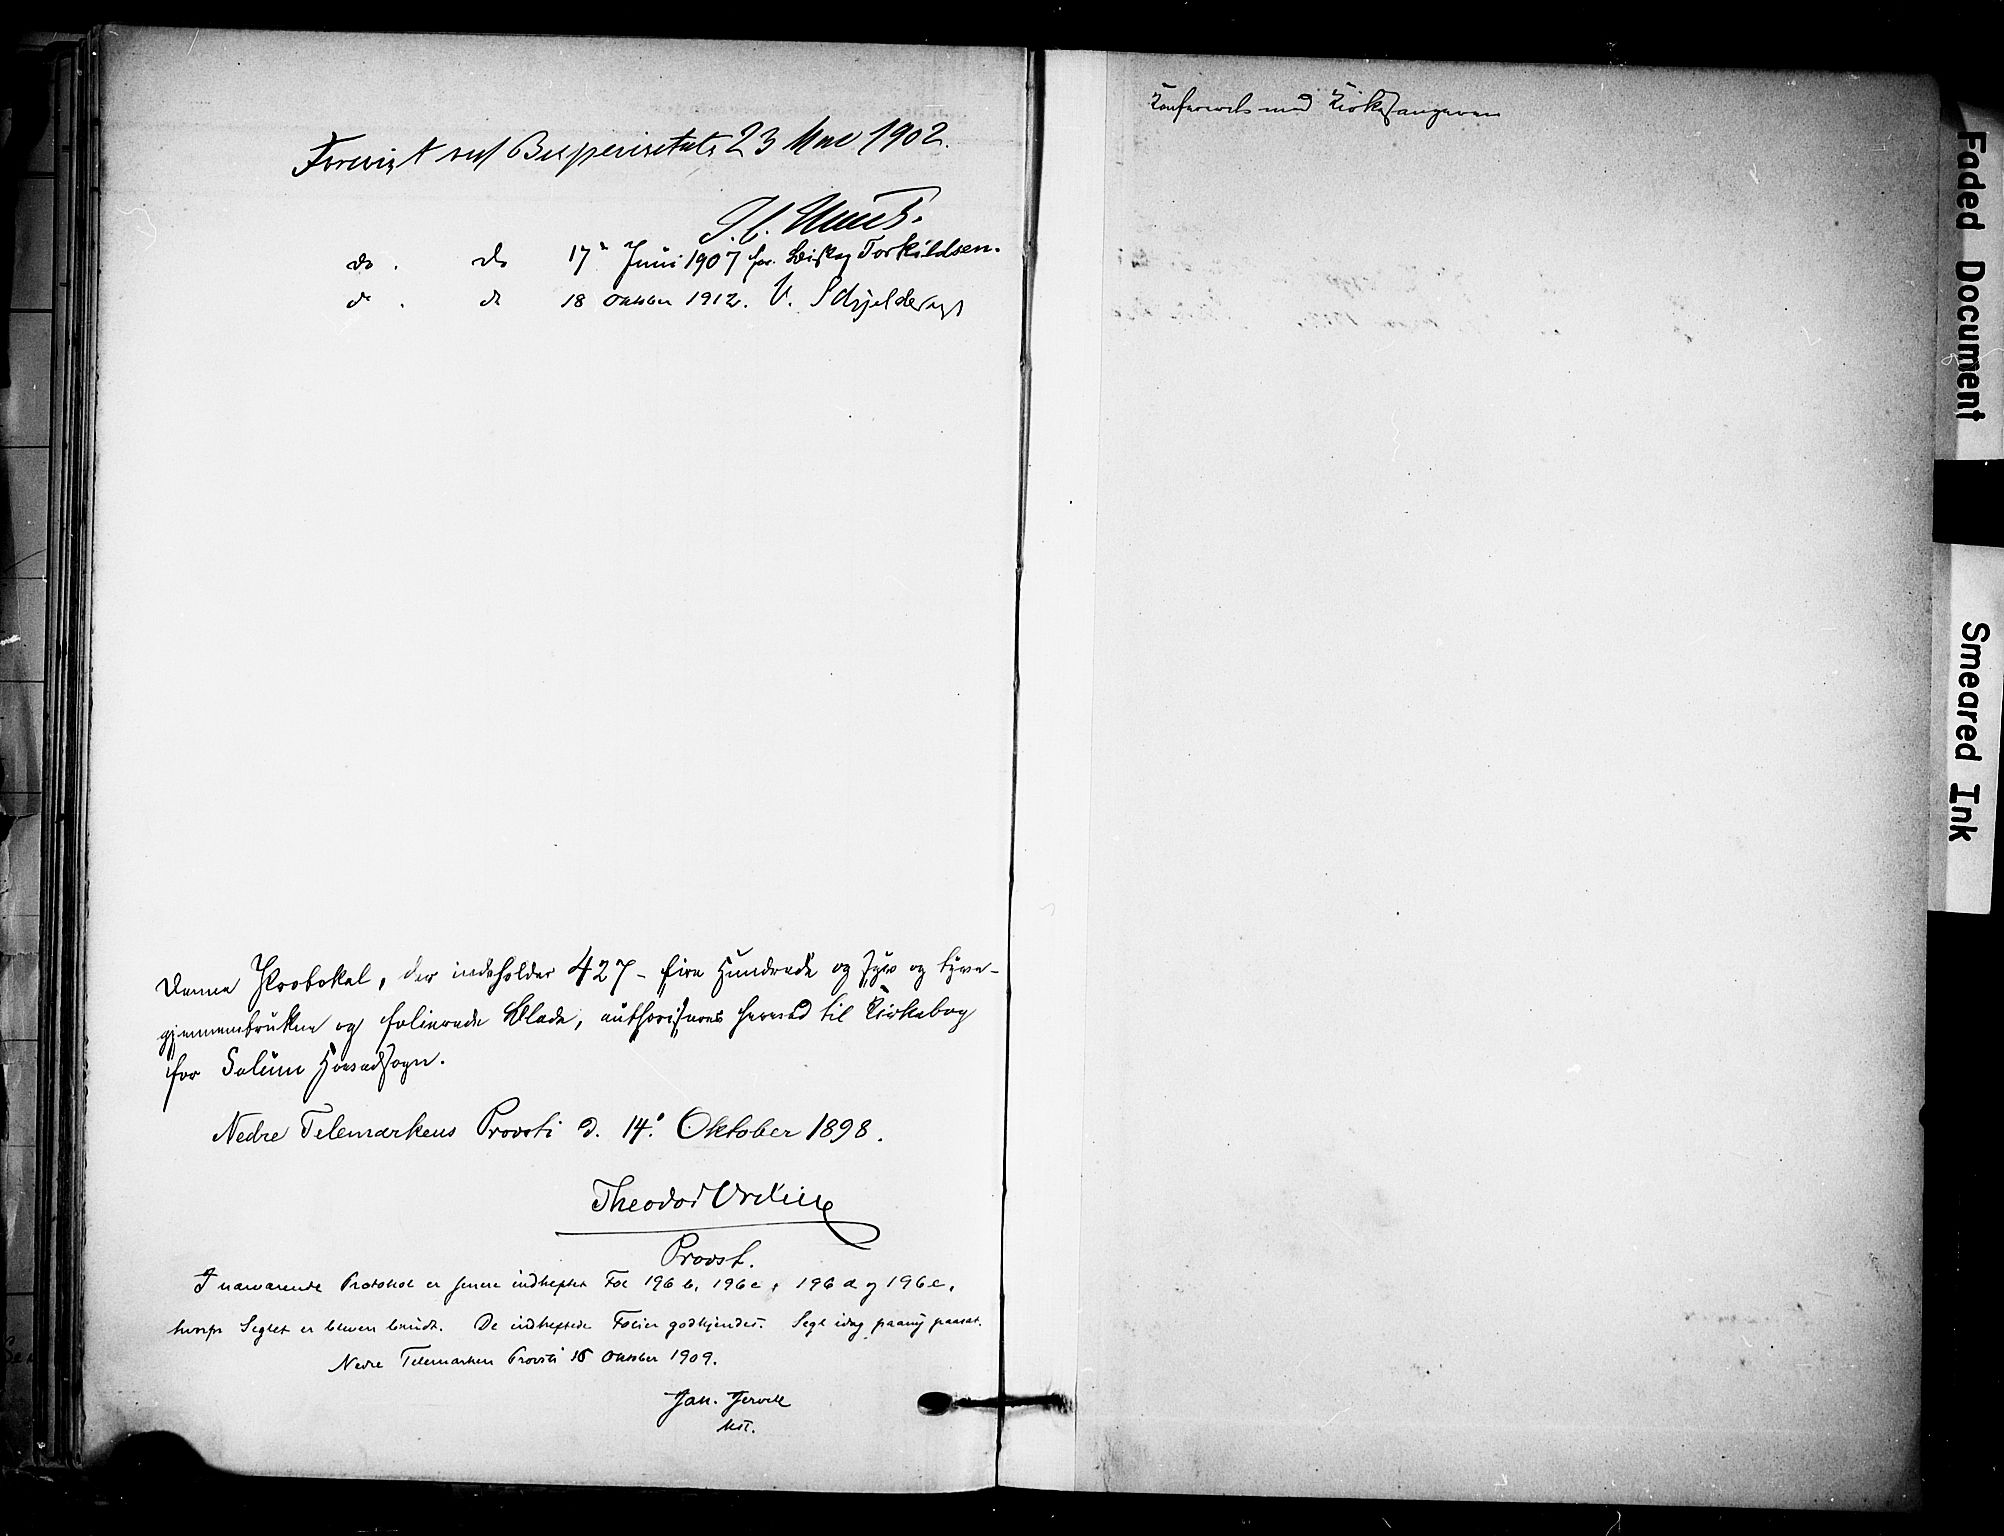 Forevist ved Bispevisitats 23 Mai 1902.
do. do 17de Juni 1907 for Biskop Torkildsen.
do. do 18 Oktober 1912. V. Schjelderup
Denne Protokol, der indeholder 427 - fire Hundrede og syv og tyve -
gjennemtrukne og folierede Blade, authoriseres herved til Kirkebog
for Solum Hovedsogn.
Nedre Telemarkens Provsti d. 14de Oktober 1898.
Theodor Ording
Provst.
I nærværende Protokol er senere indheftet Fol 196 b, 196 c, 196 d og 196 e,
hvorfor Seglet er bleven brudt. De indheftede Folier godkjendes. Segl idag paany paasat.
Nedre Telemarken Provsti 15 Oktober 1909.
Jan. Jervell
kst.
Konfereret med Kirkesangeren
Faded Document
Smeared Ink